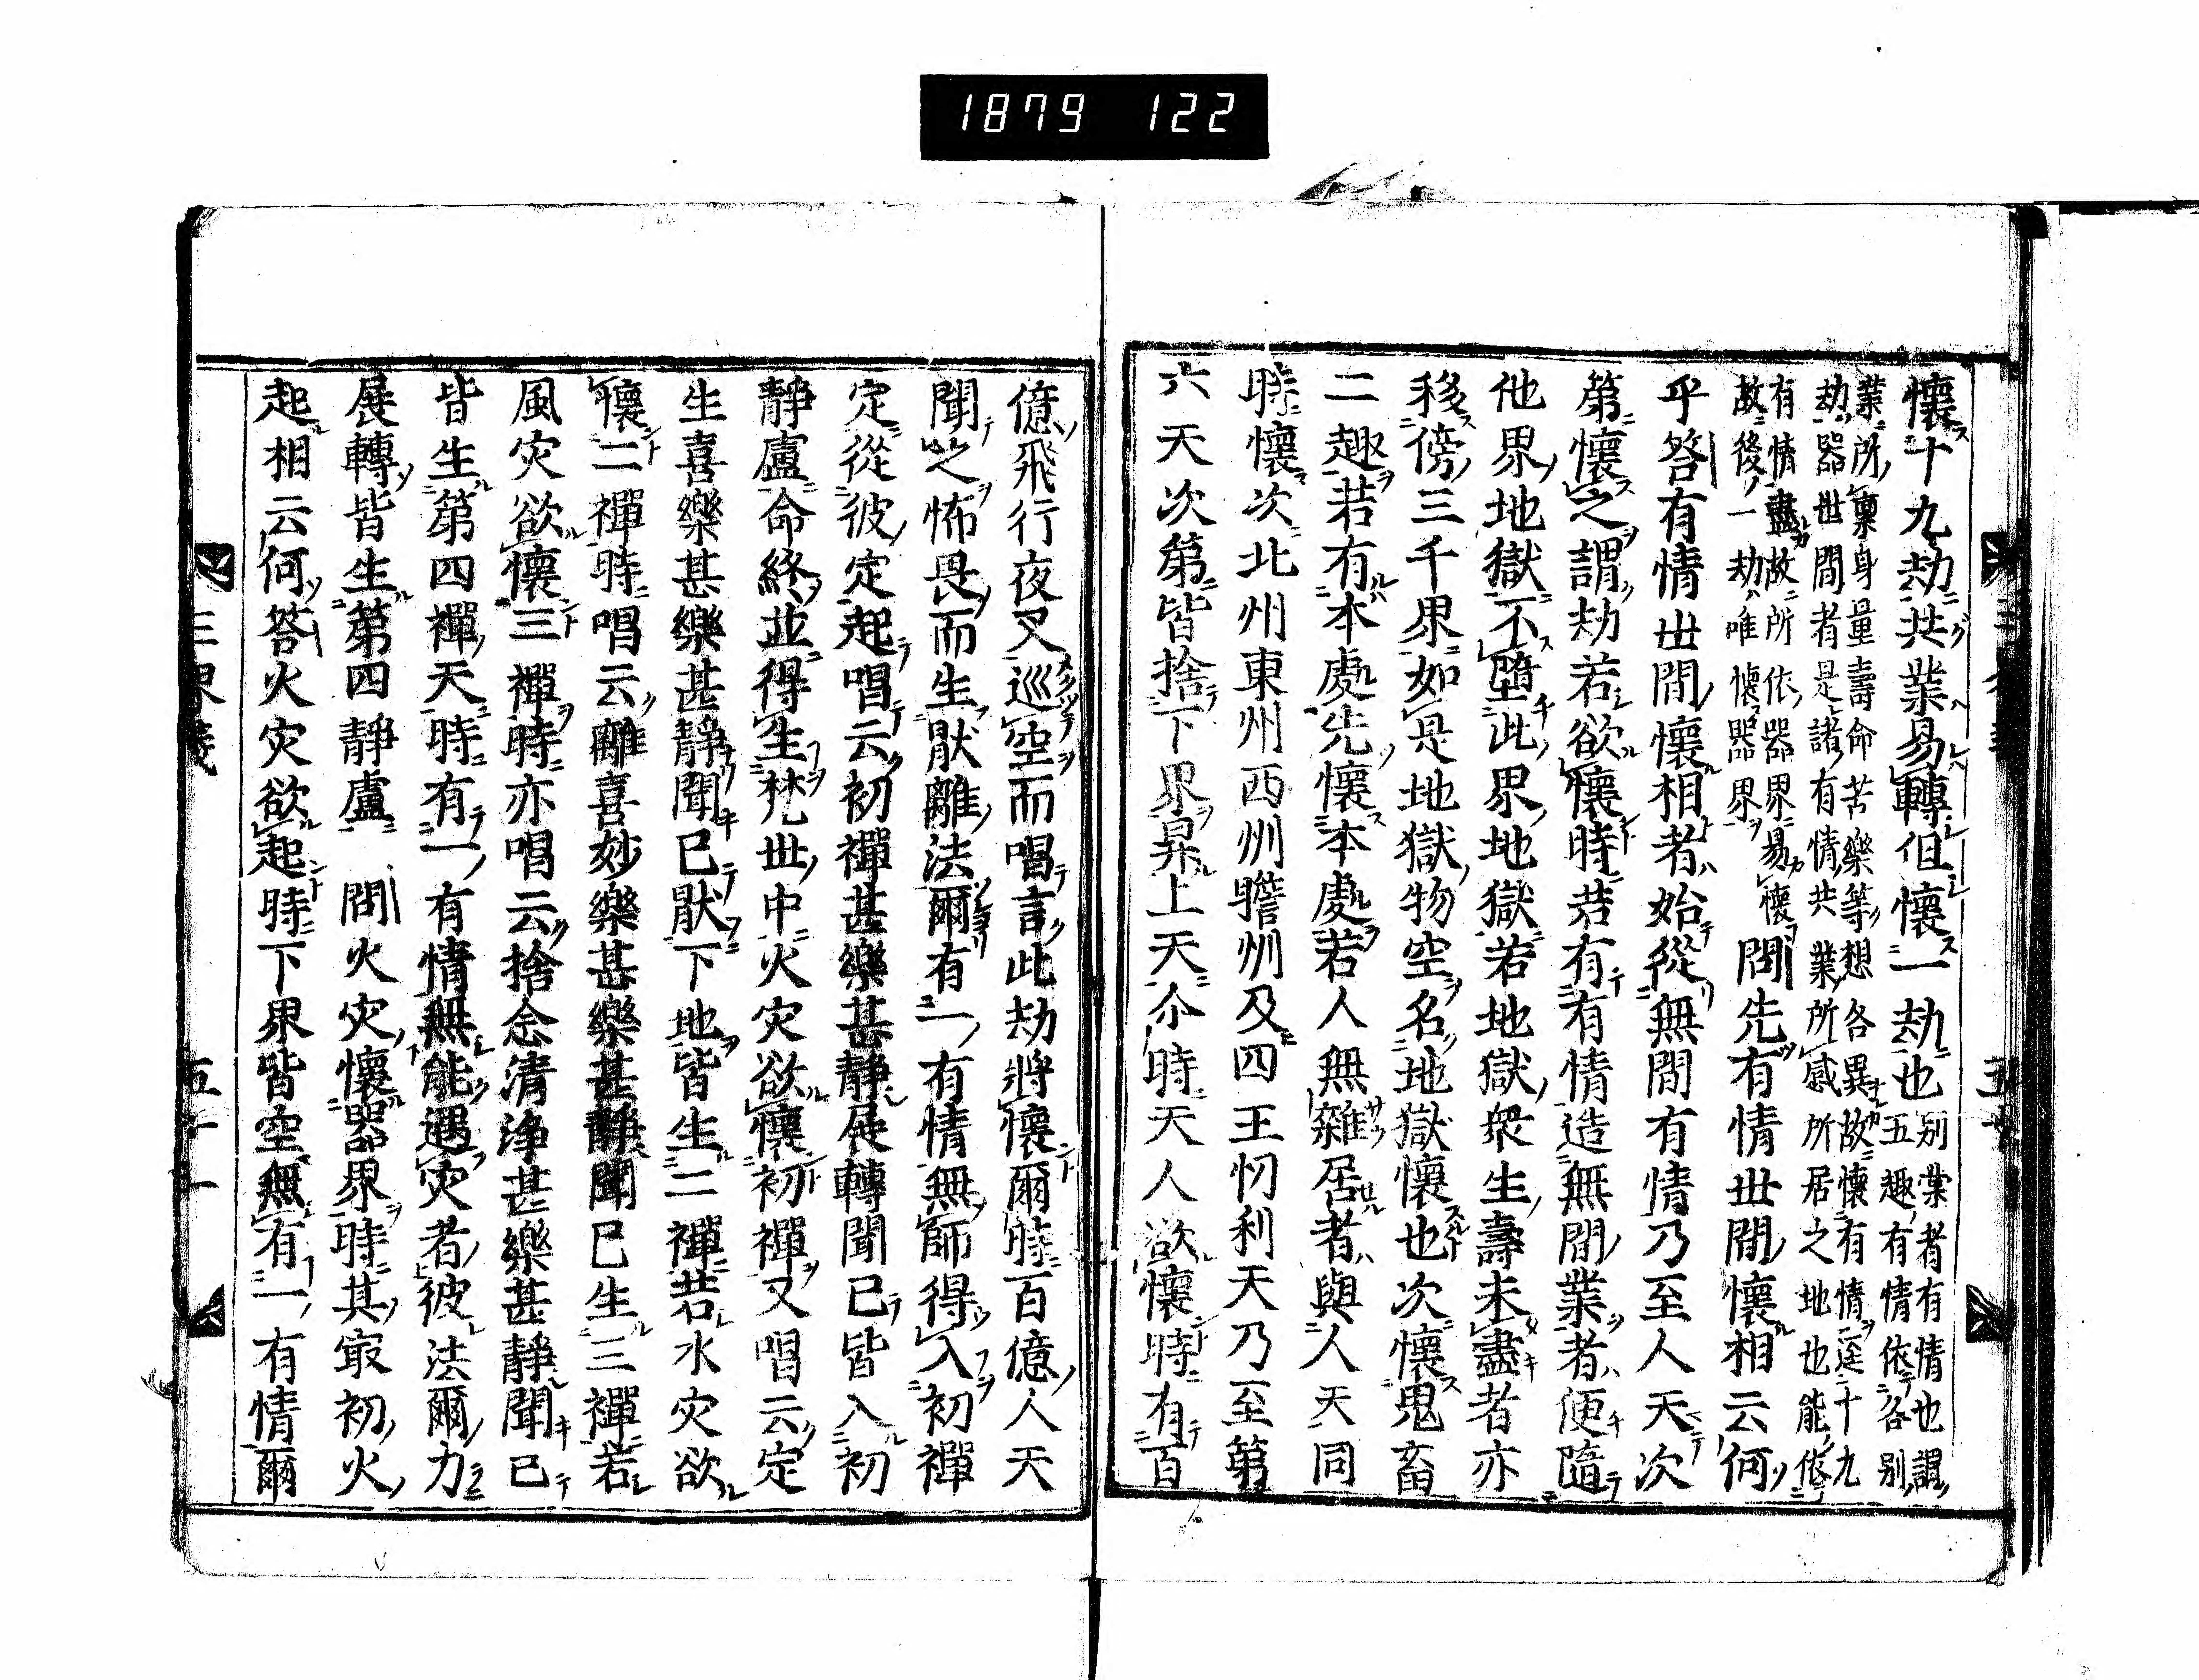 1879 122
懷十九劫共業易轉但懷一劫也
別業者有情也謂
五趣有情依各別
業所稟身量壽命苦樂等想各異故懷有情逕十九
劫器世間者是諸有情共業所感所居之地也能依
有情盡故所依器界易懷
故後一劫唯懷器界
問先有情世間懷相云何
乎答有情世間懷相者始從無間有情乃至人天次
第懷之謂劫若欲懷時若有有情造無間業者便隨
他界地獄不墮此界地獄若地獄衆生壽未盡者亦
移傍三千界如是地獄物空名地獄懷也次懷鬼畜
二趣若有本處先懷本處若人無雜居者與人天同
時懷次北州東州西州贍州及四王忉利天乃至第
六天次第皆捨下界昇上天尒時天人欲懷時有百
億飛行夜叉巡空而唱言此劫將懷爾時百億人天
聞之怖畏而生猒離法爾有一有情無師得入初禪
定從彼定起唱云初禪甚樂甚靜展轉聞已皆入初
靜盧命終並得生梵世中火灾欲懷初禪又唱云定
生喜樂甚樂甚靜聞已猒下地皆生二禪若水灾欲
懷二禪時唱云離喜妙樂甚樂甚靜聞已生三禪若
風灾欲懷三禪時亦唱云捨念清淨甚樂甚靜聞已
皆生第四禪天時有一有情無能遇灾者彼法爾力
展轉皆生第四靜盧 問火灾懷器界時其㝡初火
起相云何答火灾欲起時下界皆空無有一有情爾
三界義 五十一